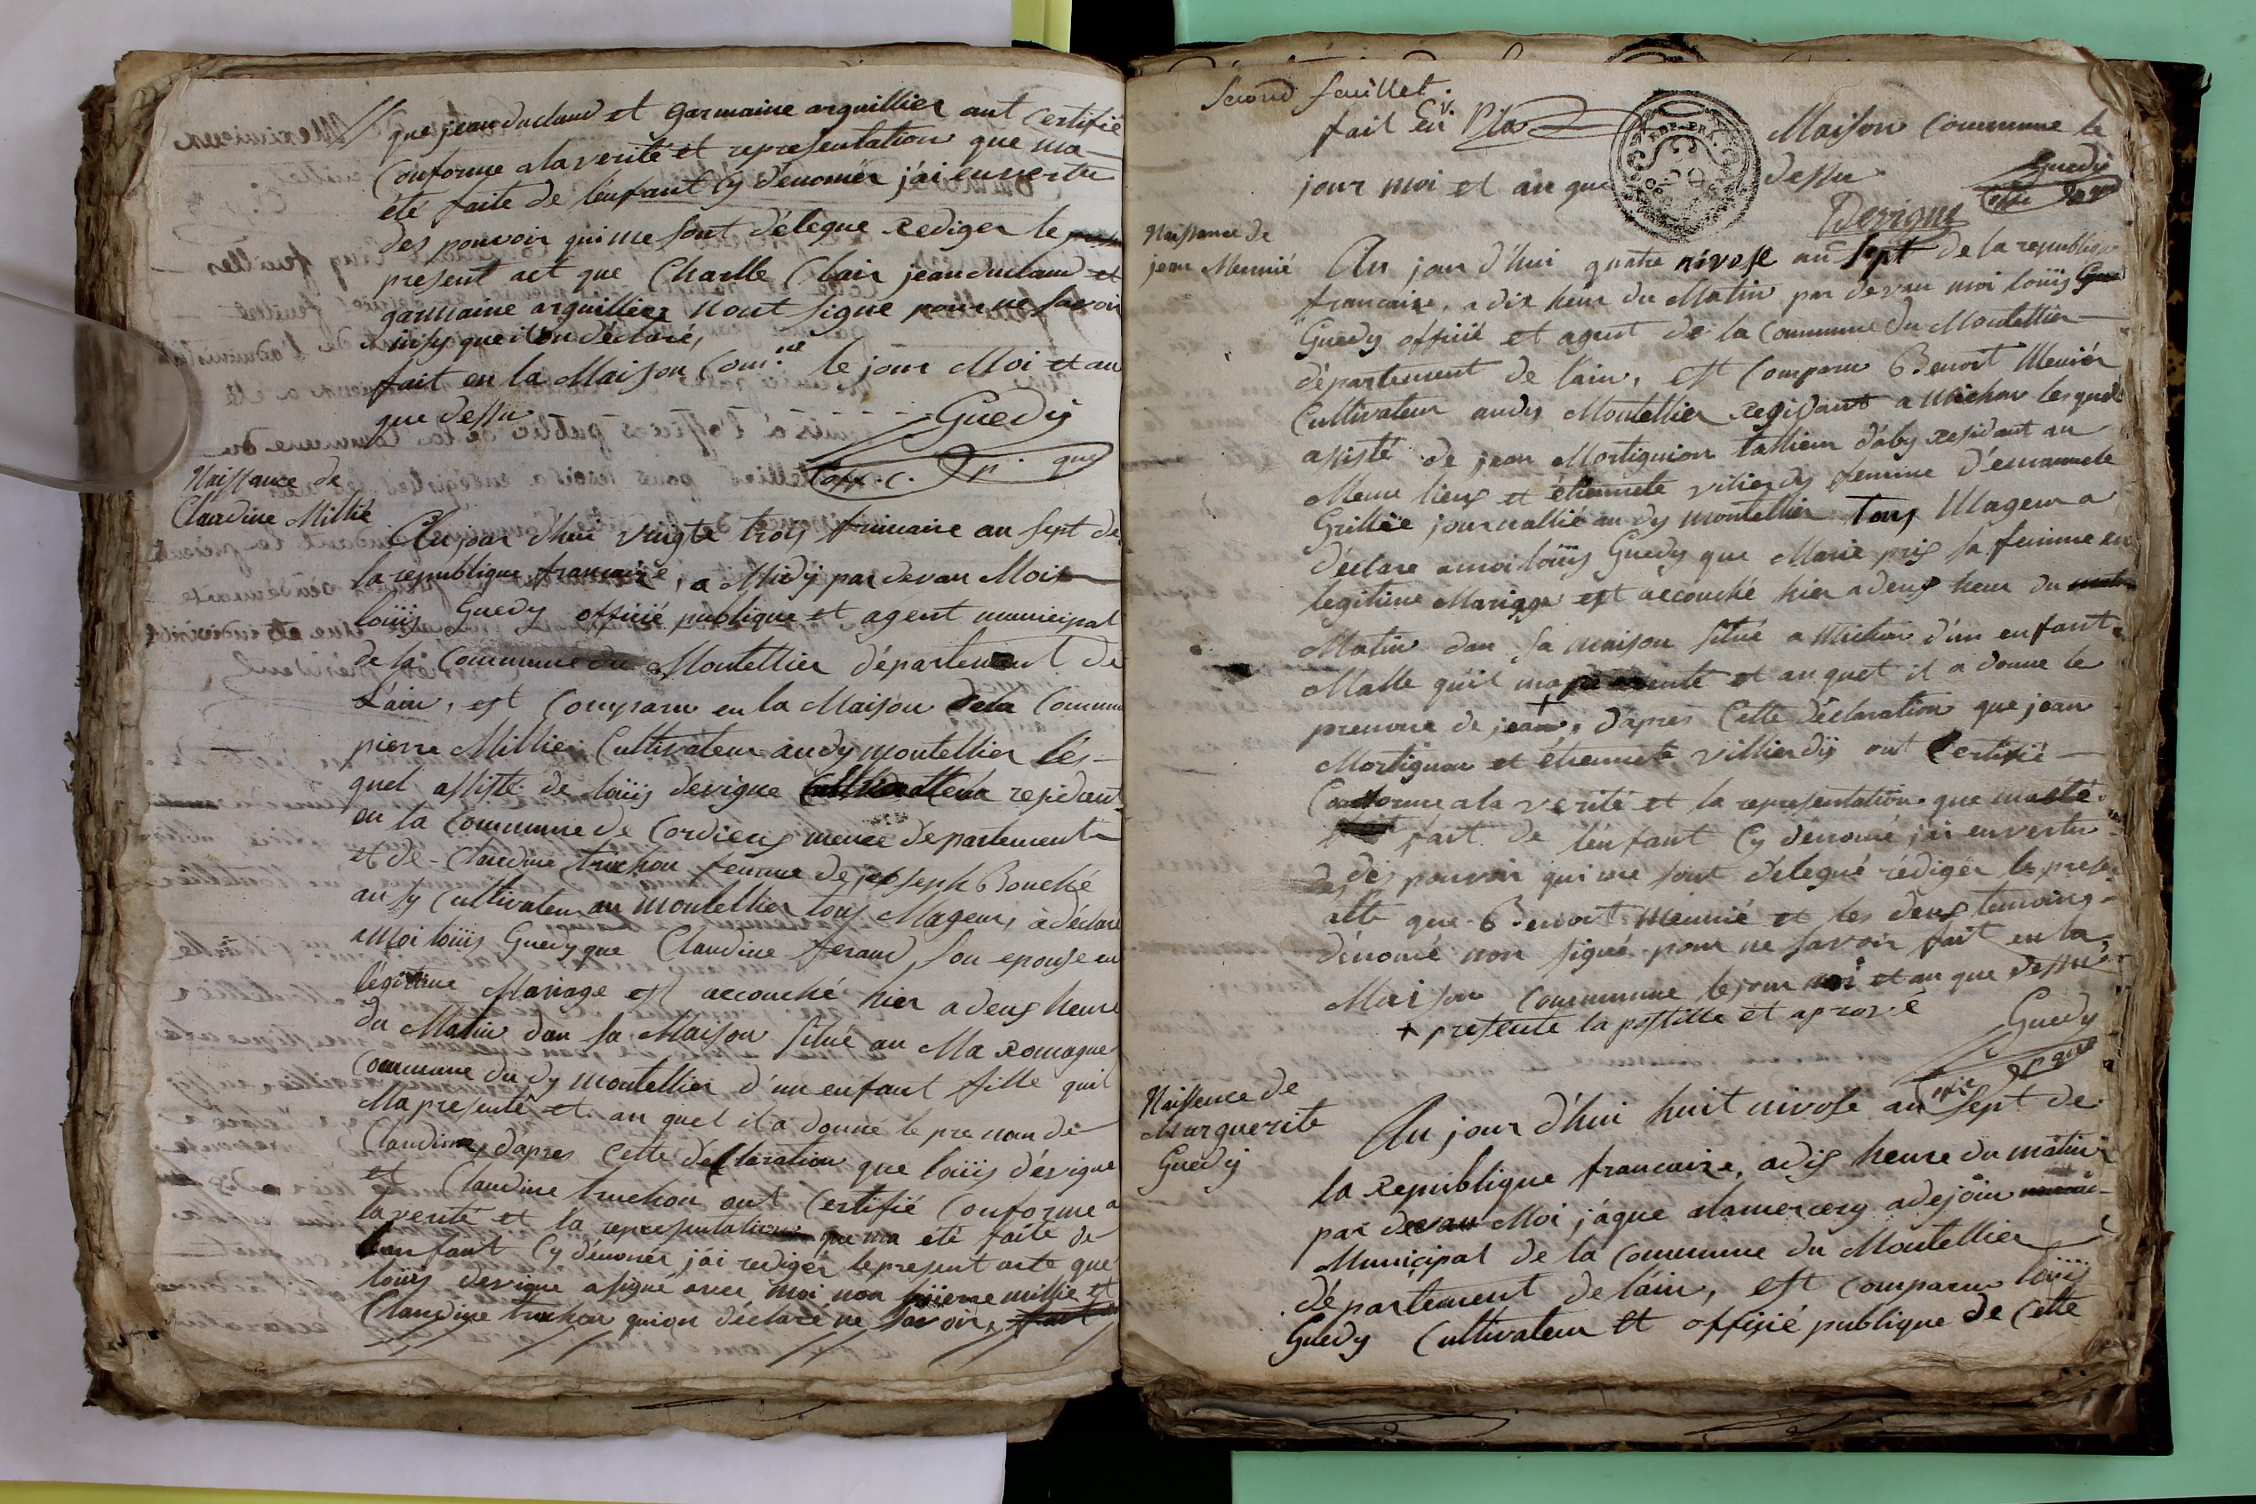 que jean duclaud et garmaine arguillier ont certifié
Conforme a la verité et representation que ma
été faite de l'enfant Cy dénomér j'ai en vertu
des pouvoir qui me sont délégué Rediger le
present act que Charlle Clair jean duclaud et
garmaine arguillier nont signe pour ne savoir
ainsy que il on déclaré,
fait en la Maison Com.ne le jour Moi et an
que dessu
Guedy
off. c.
Naissance de
Claudine Millié
Au jour d'hui vingte trois frimaire an sept de
la republique francaize, a Midy par devan Moi
loüis Guedy officié publique et agent municipal
de la Commune du Montellier département de
L'ain, est Comparu en la Maison de la Commune
pierre Millier Cultivateur audy montellier les-
quel assisté de loüis dévigne Cultivateur residant
en la Commune de Cordieux meme département
et de Claudine truchon femme de joseph Bouché
au sy Cultivateur au montellier tous Mageur, a déclaré
a Moi loüis Guedy que Claudine feraud son epouse en
légitime Mariage est accouché hier a deux heure
du Matin dan sa Maison situé au Ma Romagne
Commune du dy montellier d'un enfant fille quil
Ma presenté et au quel il a donné le prenon de
Claudine, dapres Cette déclaration que loüis dévigne
et Claudine truchon ont Certifié Conforme a
la verité et la representation que ma été faite de
l'enfant Cy dénomér j'ai rediger le present acte que
loüis devigne a signé avec Moi non pierre millié et
Claudine truchon qui on déclaré ne savoir,
Second feuillet.
fait en la Maison Commune le
jour moi et an que dessu
Guedy
Devigne
Naissance de
jean Meunié
Au jour d'hui quatre nivose an sept de la republique
francaize, a dix heur du Matin par devan moi loüis
Guedy officié et agent de la Commune du Montellier
département de l'ain, est Comparu Benoit Meunier
Cultivateur audy Montellier Residant a Michon lesquel
assisté de jean Mortignion tallieur d'aby residant au
Meme lieux et étiennete villierdy femme d'emanuele
Grillée journallié au dy montellier Tous Mageur a
déclare a moi loüis Guedy que Marie pris sa femme en
legitime Mariage est accouché hier a deux heur du
Matin dan sa maison situé a Michon d'un enfant
Malle quil ma presente et auquel il a donne le
prenome de jean, dapres Cette déclaration que jean
Mortignon et étiennete villierdÿ ont Certifié
Conforme a la verité et la representation que ma été
fait de l'enfant Cy dénomé j'ai en vertu
des pouvoir qui me sont délegué rédiger le presen
atte que Benoit Meunié et les deux temoing
dénomé non signé pour ne savoir fait en la
Maison Commune le jour moi et an que dessu
+ presente la postille et aprové
Guedy
Naissence de
Marguerite
Guedy
Au jour d'hui huit nivose an sept de
la Republique francaize, a dix heure du matin
par devan Moi jáque alamercery adejoin
Municipal de la Commune du Montellier
département de l'ain, est comparu loüis
Guedy Cultivateur et officié publique de Cette